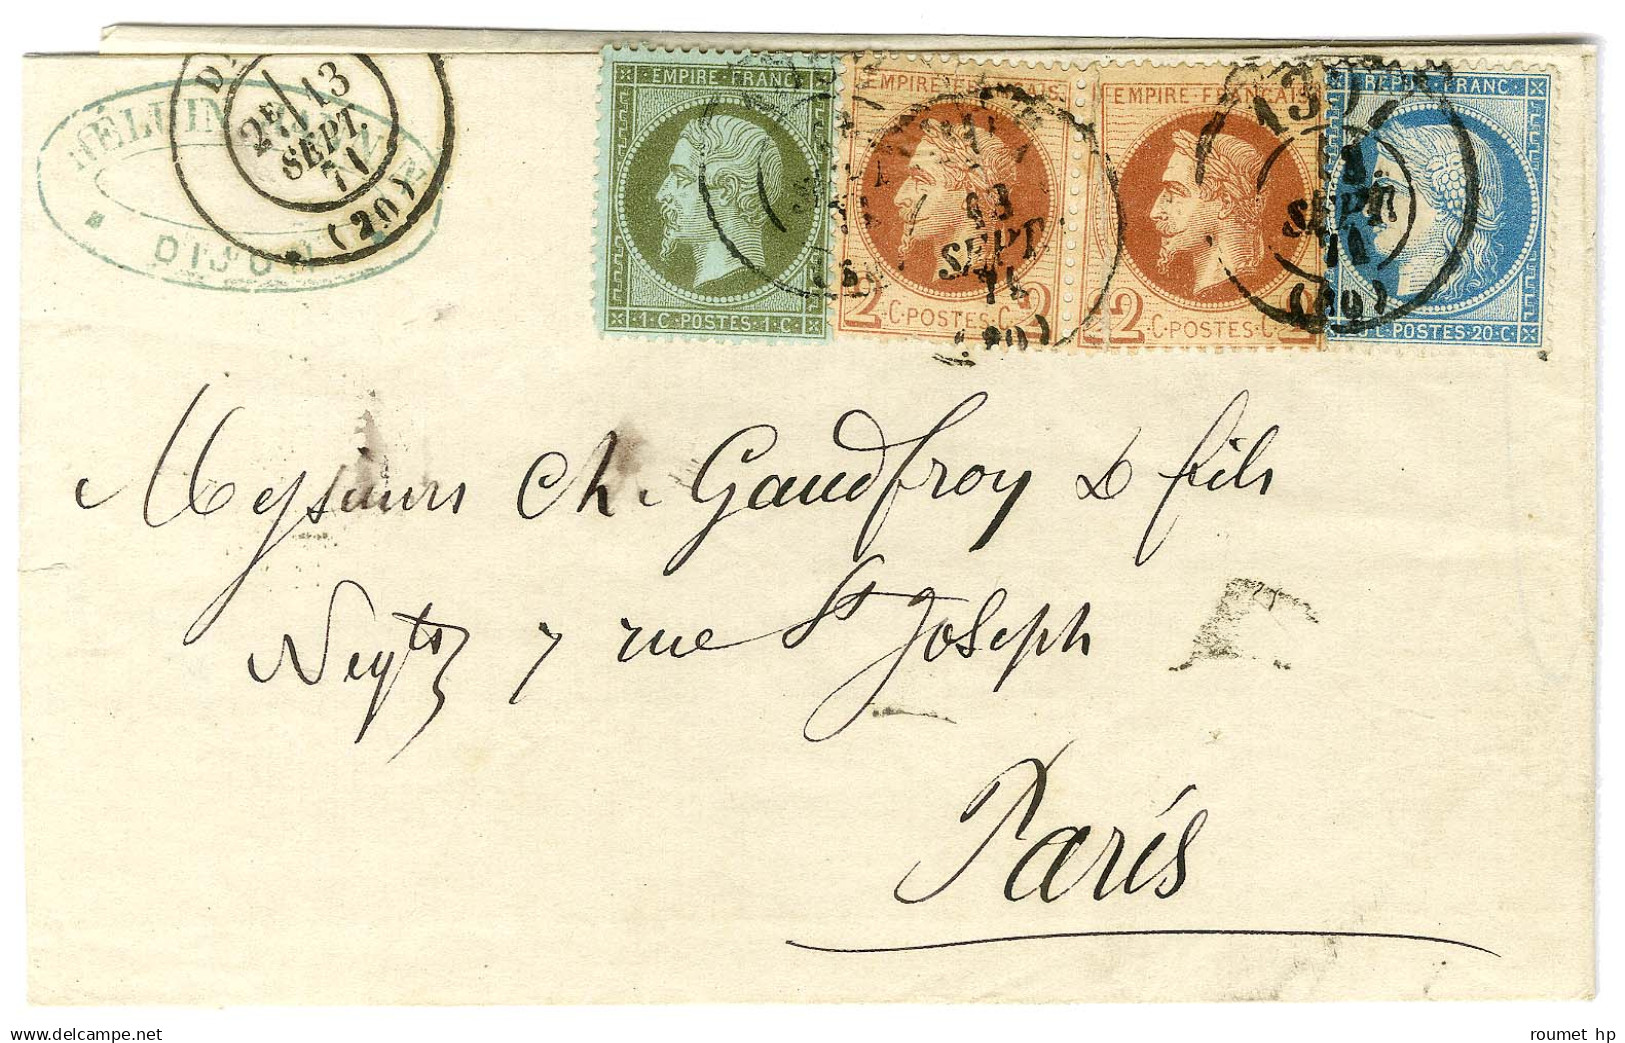 2E / 13
SEPT.
71
(20)
DIJON
EMPIRE FRANC
1·C·POSTES·1·C·
EMPIRE FRANÇAIS
2·C·POSTES·C·2
EMPIRE FRANÇAIS
2·C·POSTES·C·2
REPUB·FRANC·
20·C·POSTES·20·C·
13
SEPT.
71
(20)
SEPT.
71
(20)
Messieurs Ch. Gaudfroy & fils
Negts 7 rue St Joseph
Paris
Delcampe.net
roumet hp